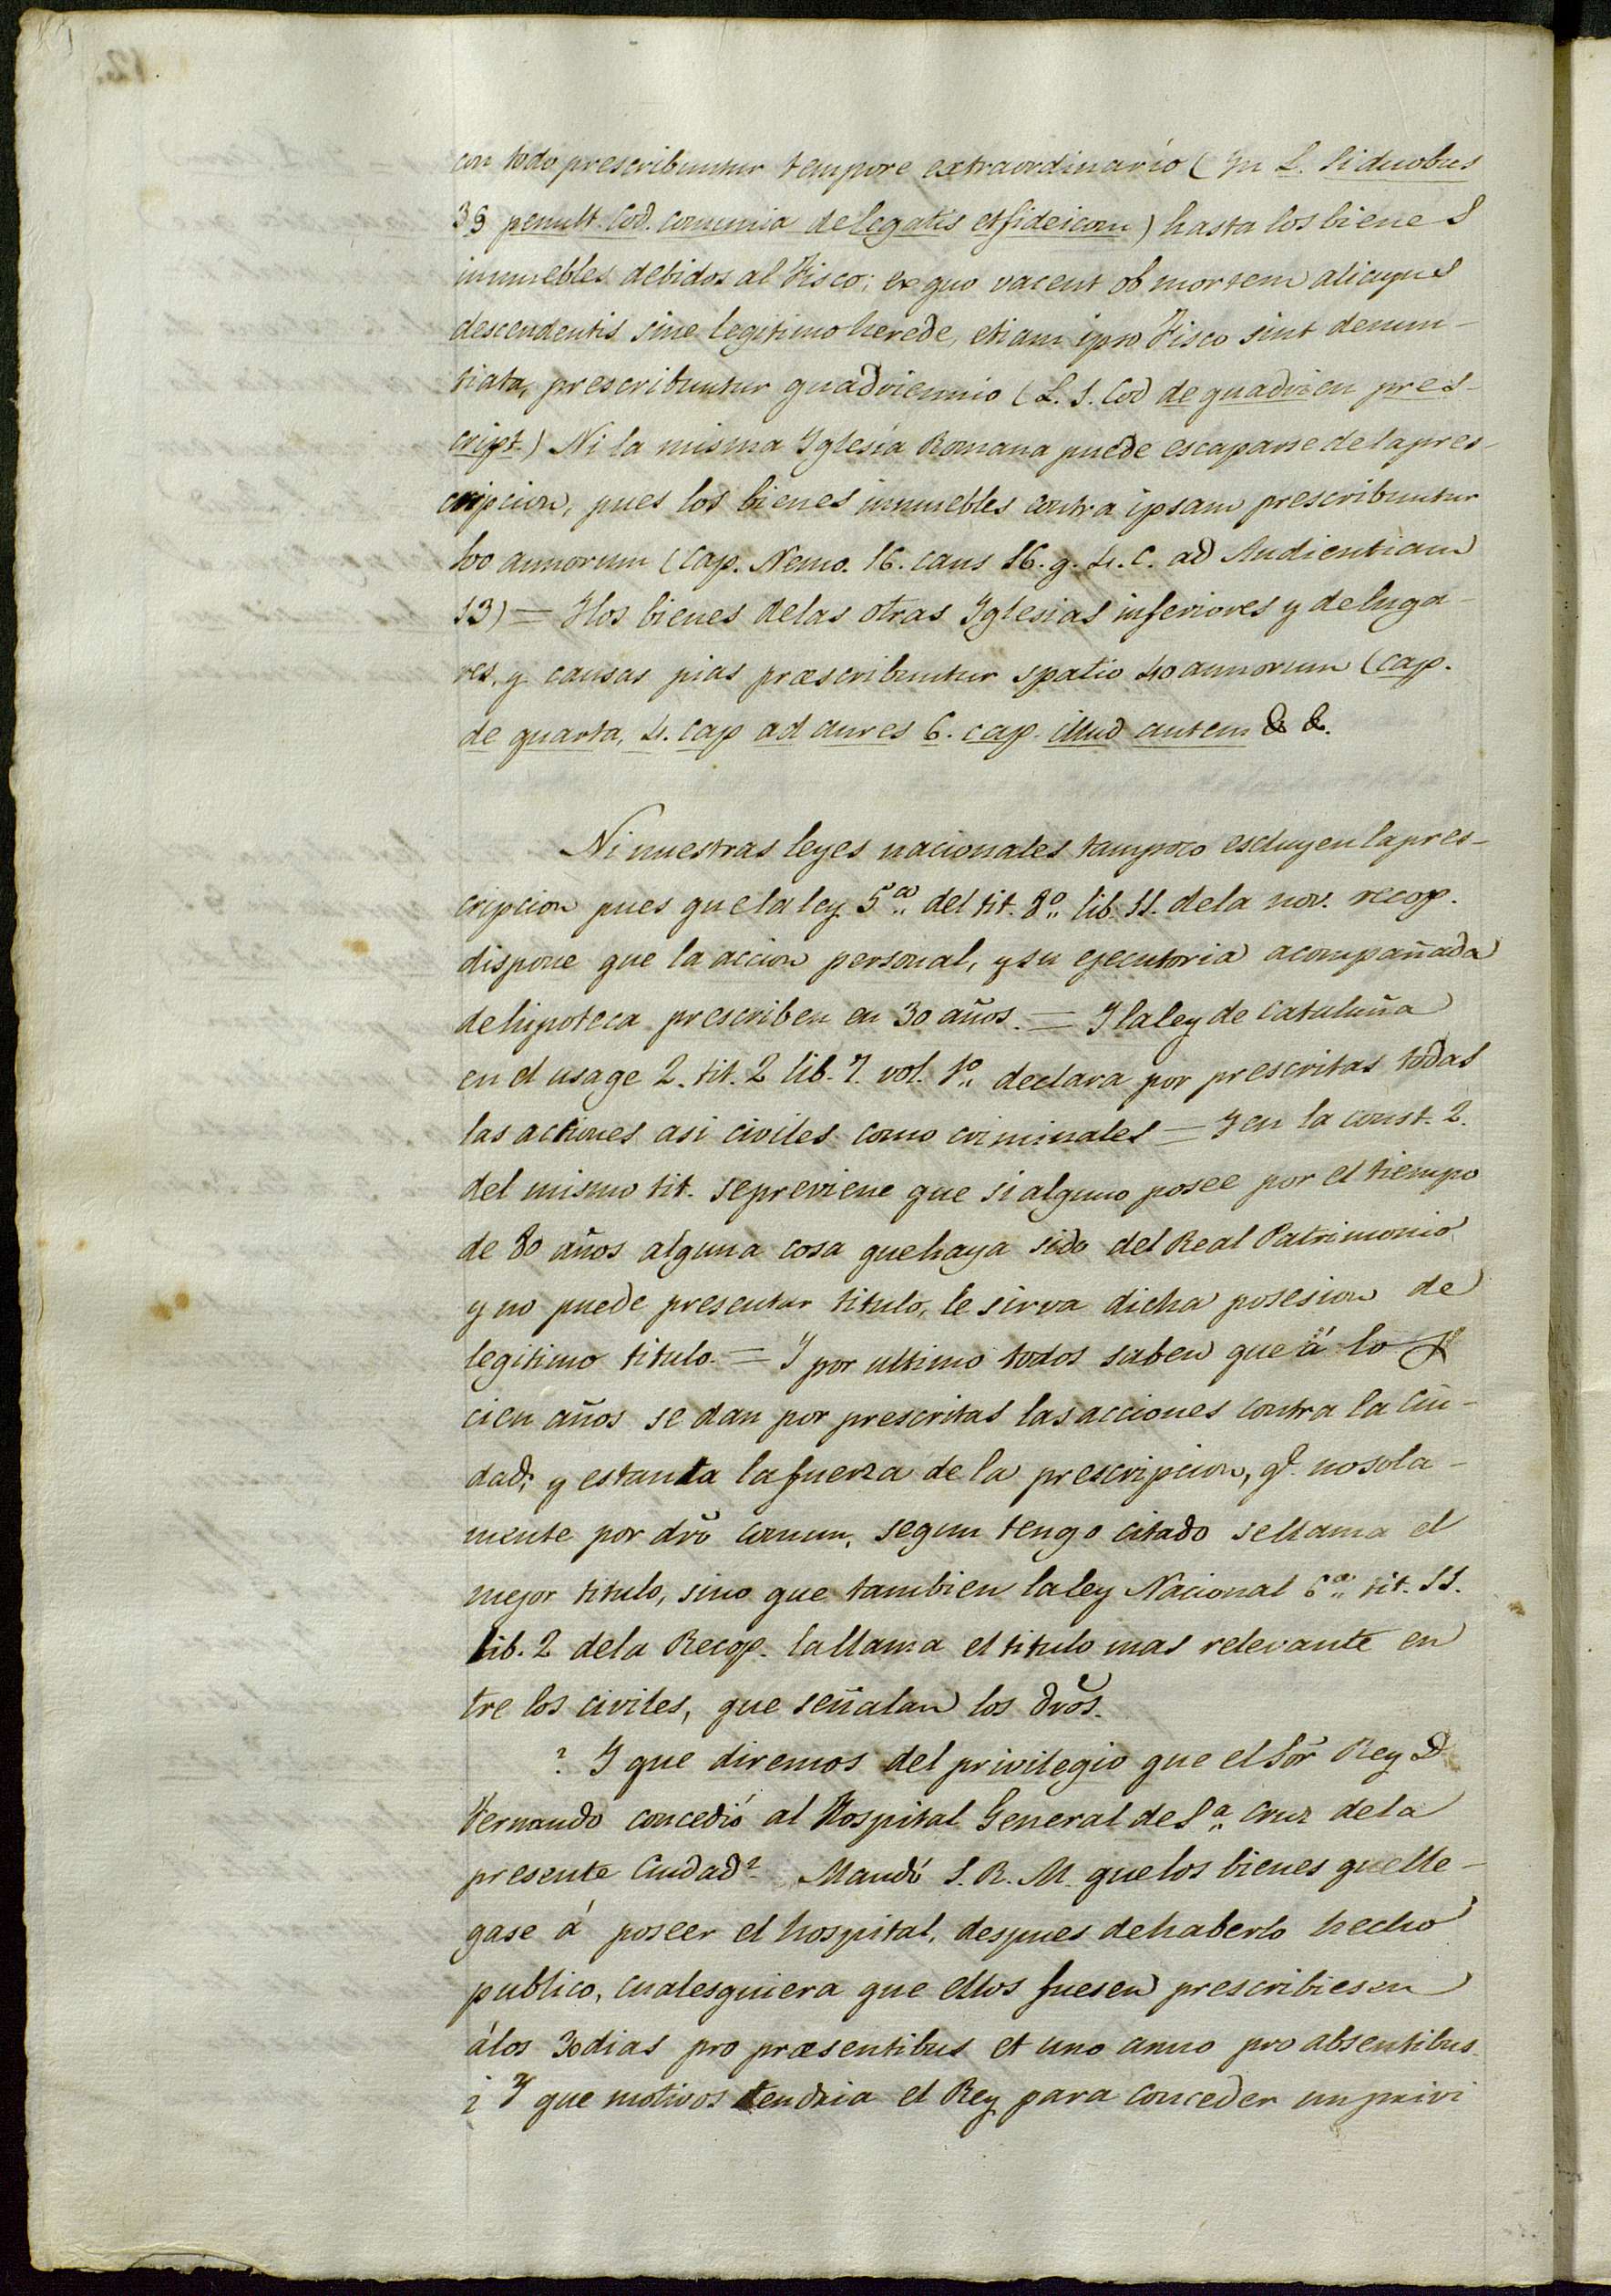 con todo prescribuntur tempore extraordinario (In L. Si duobus
3 § penult. Cod. comunia de legatis et fideicom) hasta los bienes
inmuebles debidos al Fisco; ex quo vacent ob mortem alicujus
descendentis sine legitimo herede, etiam ipso Fisco sint denun-
tiata, prescribuntur quadriennio (L. 1. Cod de quadrien pres-
cript.) Ni la misma Yglesia Romana puede escaparse de la pres-
cripcion, pues los bienes inmuebles contra ipsam prescribuntur
100 annorum (Cap. Nemo. 16. caus 16. q. 4. C. ad Audientiam
13) = Y los bienes de las otras Yglesias inferiores y de luga-
res, y causas pias præscribuntur spatio 40 annorum (cap.
de quarta, 4. cap ad aures 6. cap. illud autem & &.
Ni nuestras leyes nacionales tampoco escluyen la pres-
cripcion pues que la ley 5ª del tit. 8º lib. 11. de la nov. recop.
dispone que la accion personal, y su ejecutoria acompañada
de hipoteca prescriben en 30 años. = Y la ley de Cataluña
en el usage 2. tit. 2 lib. 7. vol. 1º declara por prescritas todas
las actiones asi civiles como criminales = Y en la const. 2.
del mismo tit. se previene que si alguno posee por el tiempo
de 80 años alguna cosa que haya sido del Real Patrimonio
y no puede presentar titulo, le sirva dicha posesion de
legitimo titulo. = Y por ultimo todos saben que á los
cien años se dan por prescritas las acciones contra la Ciu-
dad; y es tanta la fuerza de la prescripcion, qe. no sola-
mente por dro comun, segun tengo citado se llama el
mejor titulo, sino que tambien la ley Nacional 6ª tit. 11.
lib. 2 de la Recop. la llama el titulo mas relevante en
tre los civiles, que señalan los dros.
? Y que diremos del privilegio que el Sor Rey D
Fernando concedió al Hospital General de Sª Cruz de la
presente Ciudad? Mandó S. R. M. que los bienes que lle-
gase á poseer el hospital, despues de haberlo hecho
publico, cualesquiera que ellos fuesen prescribiesen
á los 30 dias pro præsentibus et uno anno pro absentibus.
¿ Y que motivos tendria el Rey para conceder un privi